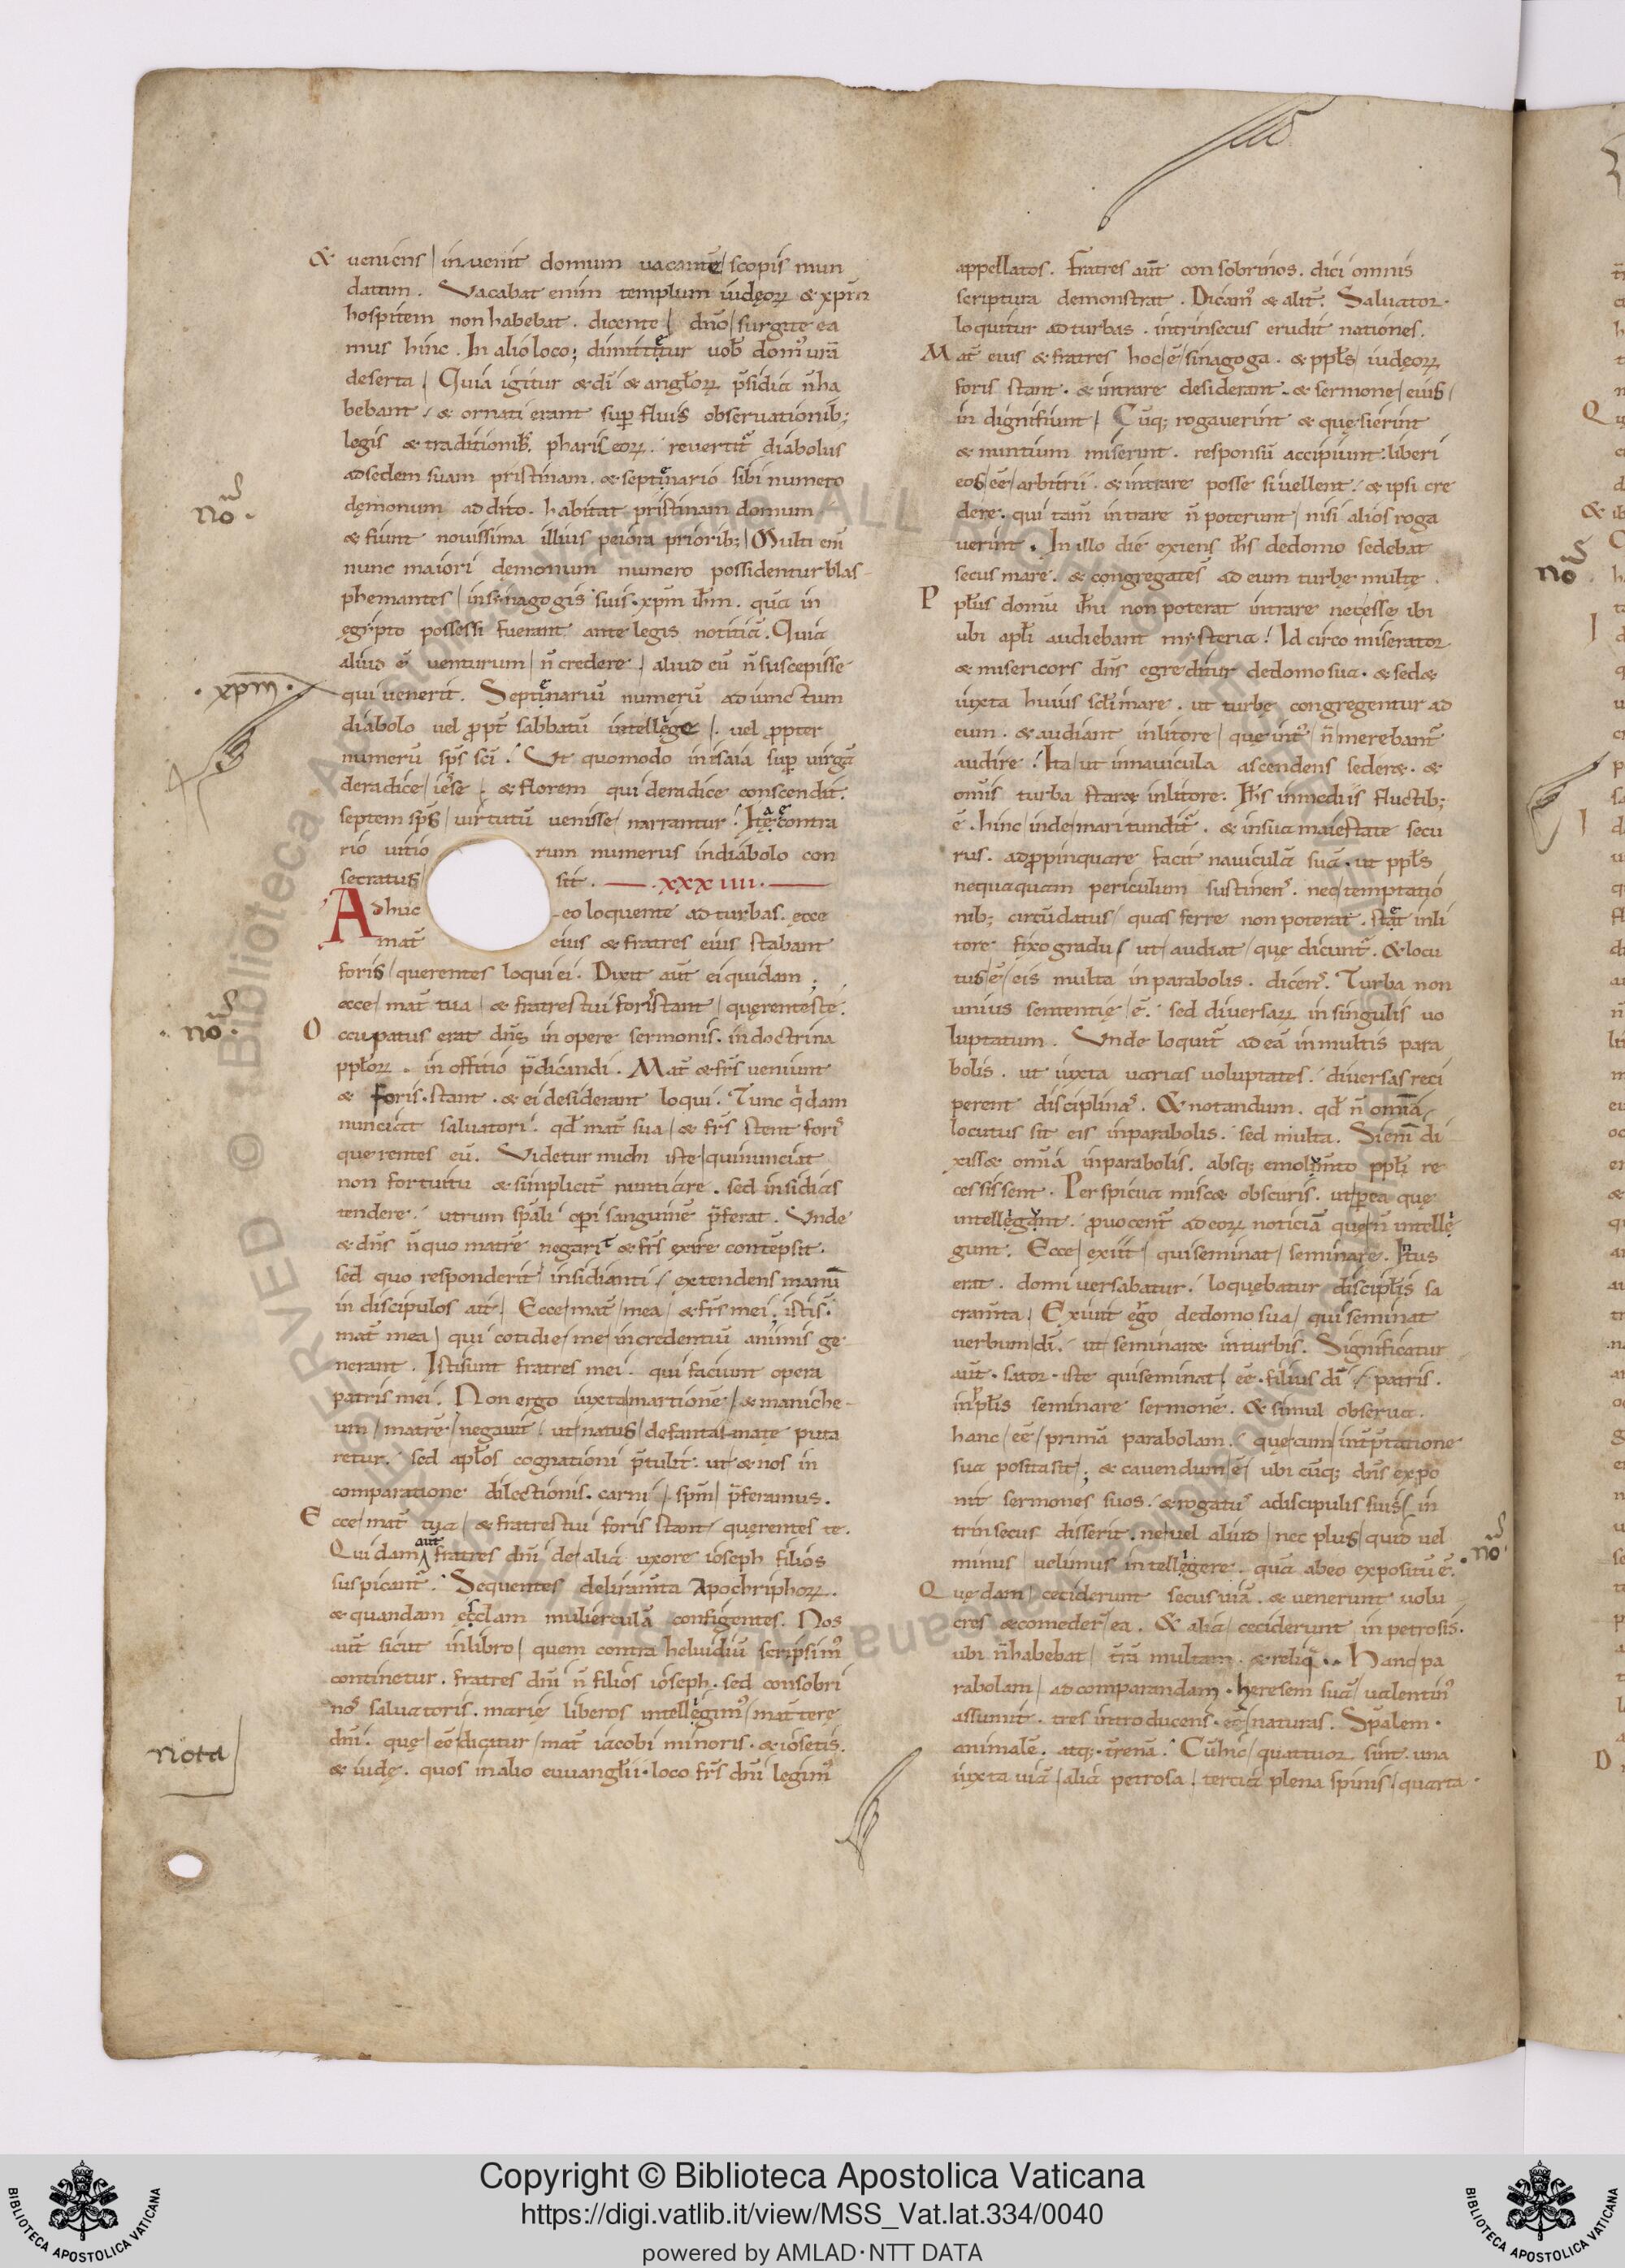 & veniens inuenit domum uacantē scopis mun
datam. Vacabat enim templum iudęorꝝ & xp̄m
hospitem non habebat. dicente dn̄o surgite ea
mus hinc. In alio loco; dimittetur uob̄ domꝰ ur̄a
deserta. Quia igitur & dī & angl̄orꝝ p̄sidia n̄ ha
bebant & ornati erant suꝑfluis obseruationib;
legis & traditionib; phariseorꝝ. reuertit̄ diabolus
ad sedem suam pristinam. & septenario sibi numero
dęmonum addito. habitat pristinam domum
& fiunt nouissima illius peiora priorib; Multi em̄
nunc maiori dęmonum numero possidentur blas
phemantes in sinagogis suis xp̄m ih̄m. quā in
ęgypto possessi fuerant ante legis notitiā. Quia
aliud ē venturum n̄ credere aliud eū n̄ suscepisse
qui uenerit. Septenariū numerū adiunctum
diabolo uel ꝓpt̄ sabbatū intellege. uel ꝓpter
numerū sp̄s sc̄i. Ut quomodo in isaia suꝑ uirgā
de radice iesse & florem qui de radice conscendit.
septem sp̄s uirtutū uenisse narrantur. Ita e contra
rio uitio rum numerus in diabolo con
secratus sit. .xxxiiii.
Adhuc eo loquente ad turbas. ecce
mat̄ eius & fratres eius stabant
foris querentes loqui ei. Dixit aūt ei quidam;
ecce mat̄ tua & fratres tui foris stant quęrentes te.
Occupatus erat dn̄s in opere sermonis. in doctrina
ppl̄orꝝ. in offitio p̄dicandi. Mat̄ & fr̄s ueniunt
& foris stant. & ei desiderant loqui. Tunc qidam
nunciat saluatori. qd̄ mat̄ sua & fr̄s stent foris
querentes eū. Videtur michi iste qui nunciat
non fortuitu & simplicit̄ nuntiare. sed insidias
tendere. utrum sp̄ali oꝑi sanguinē p̄ferat. Vnde
& dn̄s n̄ quo matrē negaret & fr̄s exire contēpsit.
sed quo responderit insidianti extendens manū
in discipulos ait. Ecce mat̄ mea & fr̄s mei; isti s̄
mat̄ mea qui cotidie me in credentiū animis ge
nerant. Isti sunt fratres mei. qui faciunt opera
patris mei. Non ergo iuxta martionē & maniche
um matrē negauit ut natus de fantasmate puta
retur. sed apl̄os cognationi p̄tulit. ut & nos in
comparatione dilectionis. carni sp̄m p̄feramus.
Ecce mat̄ tua & fratres tui foris stant quęrentes te.
Quidam aūt fratres dn̄i de alia uxore ioseph filios
suspicant̄. Sequentes deliram̄ta Apochriphorꝝ.
& quandam esclam mulierculā confingentes. Nos
aūt sicut in libro quem contra heluidiū scripsimꝰ
continetur. fratres dn̄i n̄ filios ioseph. sed consobri
nos saluatoris. marię liberos intellegimꝰ materterę
dn̄i. quę eē dicitur mat̄ iacobi minoris. & iosetis.
& iudę. quos in alio euuangl̄ii loco fr̄s dn̄i legimꝰ
appellatos. Fratres aūt consobrinos. dici omnis
scriptura demonstrat. Dicamꝰ & alit̄. Saluator
loquitur ad turbas. intrinsecus erudit nationes.
Mat̄ eius & fratres hoc ē sinagoga. & ppl̄s iudęorꝝ
foris stant. & intrare desiderant. & sermone eius
indigni fiunt. Cūq; rogauerint & quęsierint
& nuntium miserint. responsū accipiunt. liberi
eos eē arbitrii. & intrare posse si uellent. & ipsi cre
dere. qui tam̄ intrare n̄ poterunt nisi alios roga
uerint. In illo die exiens ih̄s de domo sedebat
secus mare. & congregatę s̄ ad eum turbę multę.
Ppl̄us domū ih̄u non poterat intrare nec esse ibi
ubi apl̄i audiebant mysteria. Idcirco miserator
& misericors dn̄s egreditur de domo sua. & sed&
iuxta huius sc̄li mare. ut turbe congregentur ad
eum. & audiant in litore que intꝰ n̄ merebant̄
audire. Ita ut in nauicula ascendens seder&. &
om̄is turba star& in litore. Ih̄s in mediis fluctib;
ē. hinc inde mari tundit̄. & in sua maiestate secu
rus. adꝓpinquare facit nauiculā suā. ut ppl̄s
nequaquam periculum sustinens. nec temptatio
nib; circūdatus quas ferre non poterat. stet in li
tore fixo gradu ut audiat quę dicunt̄. & locu
tus ē eis multa in parabolis. dicens. Turba non
unius sententię ē. sed diuersarꝝ in singulis uo
luptatum. Vnde loquit̄ ad eā in multis para
bolis. ut iuxta uarias uoluptates. diuersas reci
perent disciplinas. & notandum. qd̄ n̄ om̄ia
locutus sit eis in parabolis. sed multa. Si eni di
xiss& om̄ia in parabolis. absq; emolum̄to ppl̄i re
cessissent. Perspicua misc& obscuris. ut ꝑ ea quę
intellegunt. ꝓuocent̄ ad eorꝝ noticiā quę n̄ intelle
gunt. Ecce exiit qui seminat seminare. Intus
erat. domi uersabatur. loquebatur discipl̄is sa
cram̄ta. Exiuit ergo de domo sua qui seminat
uerbum dī. ut seminar& in turbis. Significatur
aūt. sator iste qui seminat. eē filius dī patris.
in ppl̄is seminare sermonē. & simul obserua.
hanc eē primā parabolam. quę cum int̄p̄tatione
sua posita sit; & cauendum ē ubicūq; dn̄s expo
nit sermones suos. & rogatus a discipulis suis in
trinsecus disserit. ne uel aliud nec plus quid uel
minus uelimus intellegere. quā ab eo expositū ē.
Quędam ceciderunt secus uiā. & uenerunt uolu
cres & comeder̄ ea. & alia ceciderunt in petrosis.
ubi n̄ habebat tr̄a multam. & reliq̄. Hanc pa
rabolam ad comparandam heresem suā ualentinꝰ
assumit. tres introducens eē naturas. Sp̄alem.
animalē. atq; tr̄enā. Cū hic quattuor sint. una
iuxta uiā alia petrosa. tertia plena spinis. quarta
no
xp̄m
no
nota
no
no
Copyright © Biblioteca Apostolica Vaticana
https://digi.vatlib.it/view/MSS_Vat.lat.334/0040
powered by AMLAD·NTT DATA
BIBLIOTECA APOSTOLICA VATICANA
BIBLIOTECA APOSTOLICA VATICANA